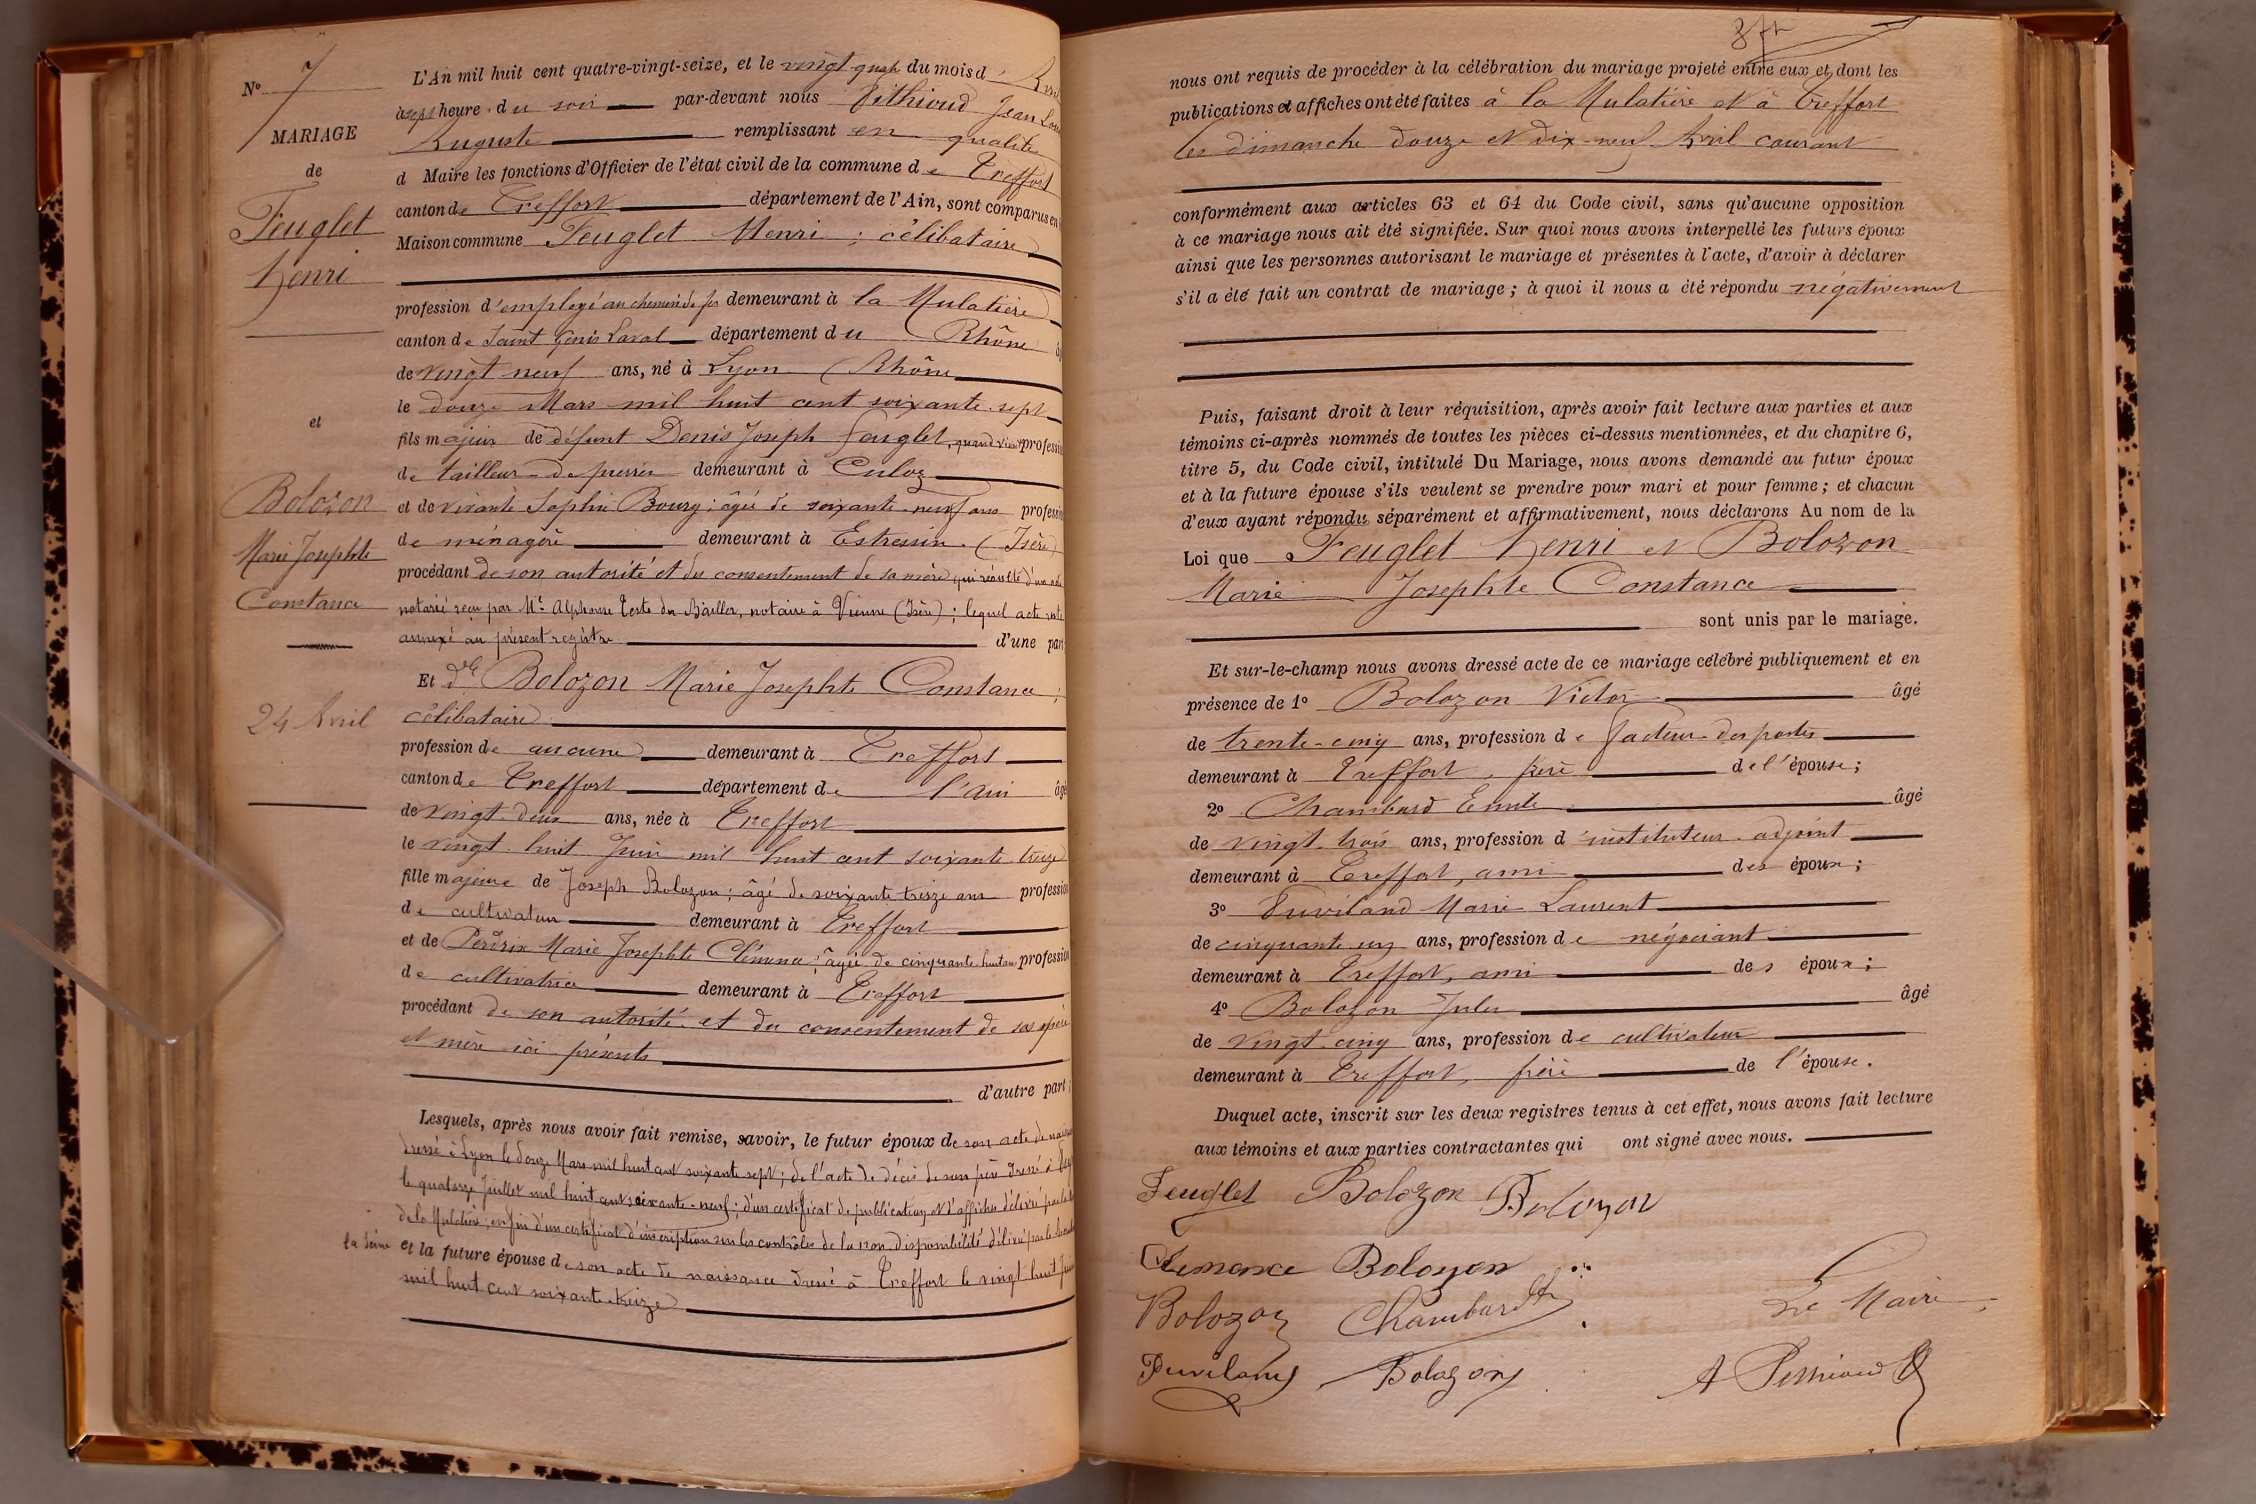 N° 7
MARIAGE
de
Feuglet
Henri
et
Bolozon
Marie Josephte
Constance
24 Avril
L'An mil huit cent quatre-vingt-seize, et le vingt quatre du mois d'Avril
à sept heure du soir par-devant nous Jean Louis
Auguste remplissant en qualité
d Maire les fonctions d'Officier de l'état civil de la commune de Treffort
canton de Treffort département de l'Ain, sont comparus en
Maison commune Feuglet Henri ; célibataire
profession d'employé au chemin de fer demeurant à la Mulatière
canton de Saint Genis Laval département du Rhône
de vingt neuf ans, né à Lyon (Rhône
le douze Mars mil huit cent soixante-sept
fils majeur de défunt Denis Joseph Feuglet, quand vivait profession
de tailleur de pierres demeurant à Culoz
et de vivante Sophie Bourg ; âgée de soixante-neuf ans profession
de ménagère demeurant à Estressin (Isère)
procédant de son autorité et du consentement de sa mère, qui résulte d'un acte
notarié reçu par Me Alphonse Teste du Bailler, notaire à Vienne (Isère) ; lequel acte reste
annexé au présent registre d'une part
Et dlle Bolozon Marie Josephte Constance ;
célibataire
profession de aucune demeurant à Treffort
canton de Treffort département de l'Ain âgé
de vingt-deux ans, née à Treffort
le vingt-huit Juin mil huit cent soixante-treize
fille majeure de Joseph Bolozon ; âgé de soixante treize ans profession
de cultivateur demeurant à Treffort
et de Perdrix Marie Josephte Clémence ; âgée de cinquante-huit ans profession
de cultivatrice demeurant à Treffort
procédant de son autorité et du consentement de ses père
et mère ici présents
d'autre part ;
Lesquels, après nous avoir fait remise, savoir, le futur époux de son acte de naissance
dressé à Lyon le douze Mars mil huit cent soixante sept ; de l'acte de décès de son père dressé à
le quatorze Juillet mil huit cent soixante-neuf ; d'un certificat de publication et d'affiches délivré par le
de la Mulatière, enfin d'un certificat d'inscription sur les contrôles de la non disponibilité délivré par le
la Seine et la future épouse de son acte de naissance dressé à Treffort le vingt-huit Juin
mil huit cent soixante-treize
nous ont requis de procéder à la célébration du mariage projeté entre eux et dont les
publications et affiches ont été faites à la Mulatière et à Treffort
les dimanche douze et dix-neuf Avril courant
conformément aux articles 63 et 64 du Code civil, sans qu'aucune opposition
à ce mariage nous ait été signifiée. Sur quoi nous avons interpellé les futurs époux
ainsi que les personnes autorisant le mariage et présentes à l'acte, d'avoir à déclarer
s'il a été fait un contrat de mariage ; à quoi il nous a été répondu négativement
Puis, faisant droit à leur réquisition, après avoir fait lecture aux parties et aux
témoins ci-après nommés de toutes les pièces ci-dessus mentionnées, et du chapitre 6,
titre 5, du Code civil, intitulé Du Mariage, nous avons demandé au futur époux
et à la future épouse s'ils veulent se prendre pour mari et pour femme ; et chacun
d'eux ayant répondu séparément et affirmativement, nous déclarons Au nom de la
Loi que Feuglet Henri et Bolozon
Marie Josephte Constance
sont unis par le mariage.
Et sur-le-champ nous avons dressé acte de ce mariage célébré publiquement et en
présence de 1° Bolozon Victor âgé
de trente-cinq ans, profession de facteur des postes
demeurant à Treffort, frère de l'épouse ;
2° Chambard Emile âgé
de vingt-trois ans, profession d'instituteur adjoint
demeurant à Treffort, ami des époux ;
3° Puviland Marie Laurent
de cinquante un ans, profession de négociant
demeurant à Treffort, ami des époux ;
4° Bolozon Jules âgé
de vingt-cinq ans, profession de cultivateur
demeurant à Treffort, frère de l'épouse.
Duquel acte, inscrit sur les deux registres tenus à cet effet, nous avons fait lecture
aux témoins et aux parties contractantes qui ont signé avec nous.
Feuglet Bolozon Bolozon
Clémence Bolozon
Bolozon Chambard Le Maire
Puviland Bolozon